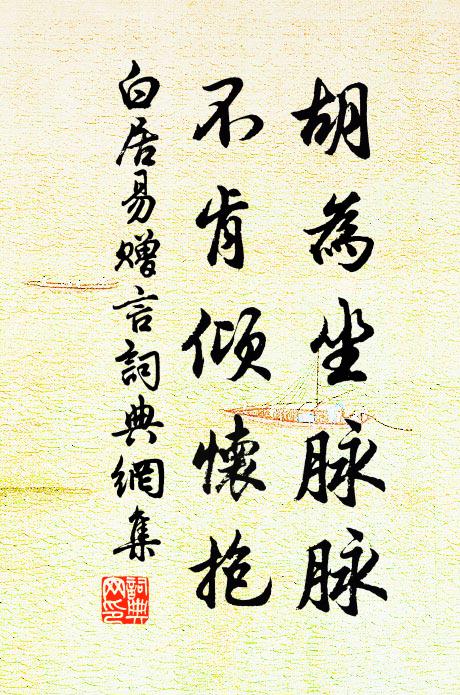 胡為坐脉脉
不肯傾懷抱
白居易贈言詞典網集
詞典
网印